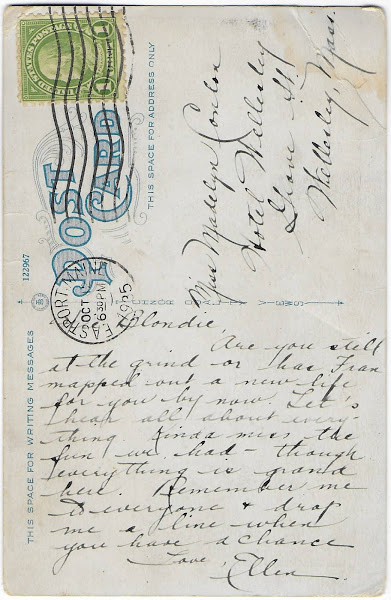 POST CARD
THIS SPACE FOR ADDRESS ONLY
Miss Madelyn Conlon
Hotel Wellesley
Grove St.
Wellesley, Mass.
122967
THIS SPACE FOR WRITING MESSAGES
EASTPORT, MAINE
OCT
630PM
1925
Blondie,
Are you still
at the grind or has Fran
mapped out a new life
for you by now. Let's
hear all about every-
thing. Kinda miss the
fun we had - though
everything is grand
here. Remember me
to everyone & drop
me a line when
you have a chance
Love,
Ellen